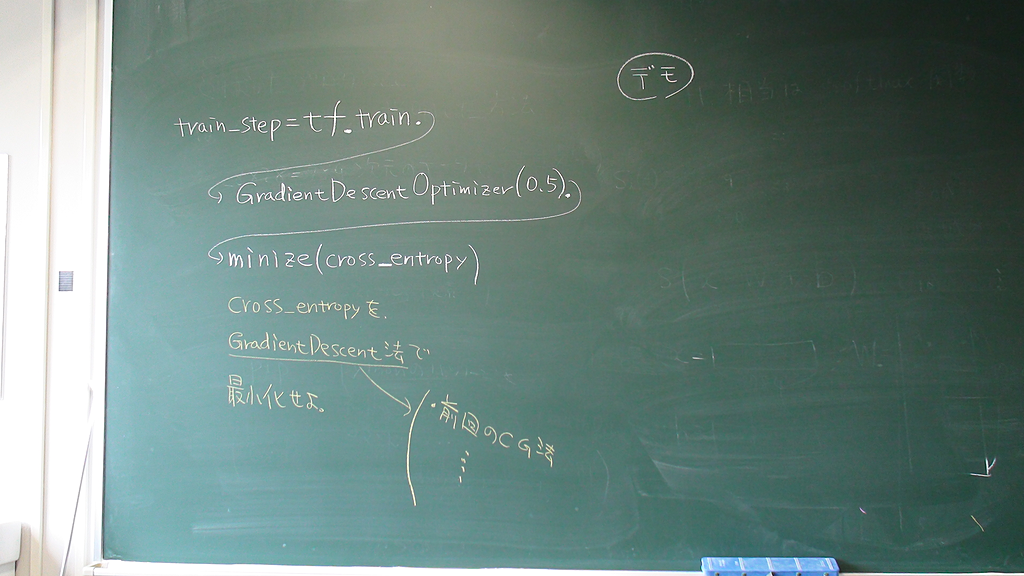 デモ
train_step=tf.train.
GradientDescentOptimizer(0.5).
minize(cross_entropy)
cross_entropyを、
GradientDescent法で
最小化せよ。
・前回のCG法